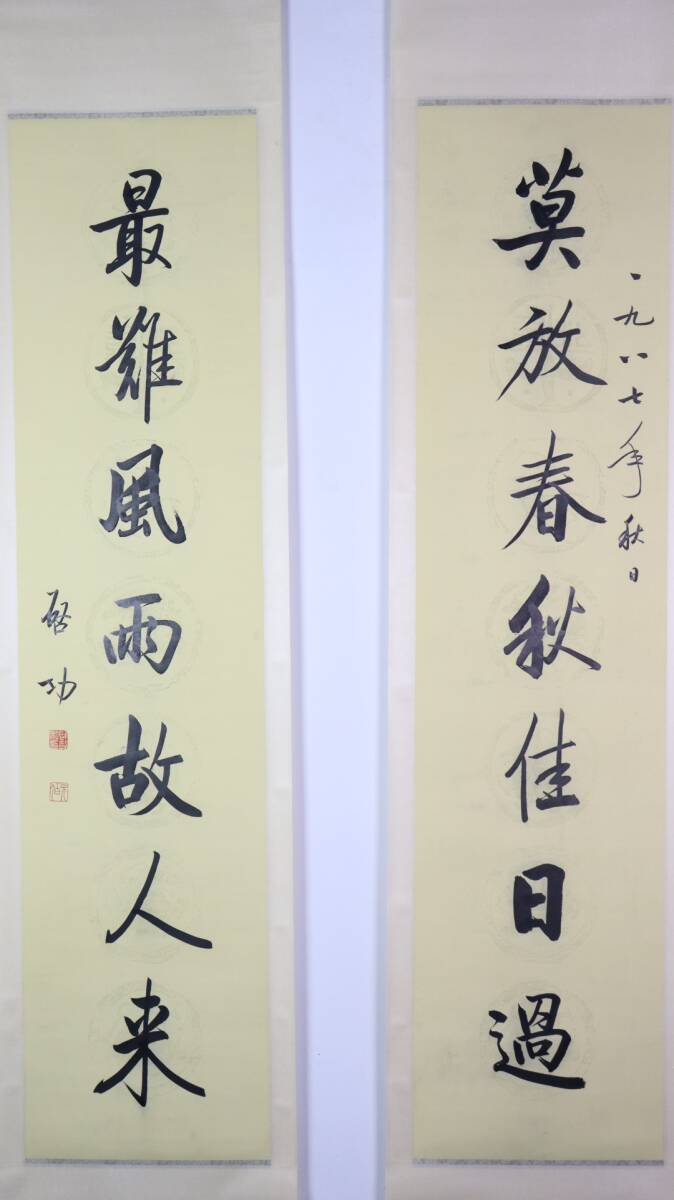 莫放春秋佳日過
一九八七年秋日
最難風雨故人来
啓功